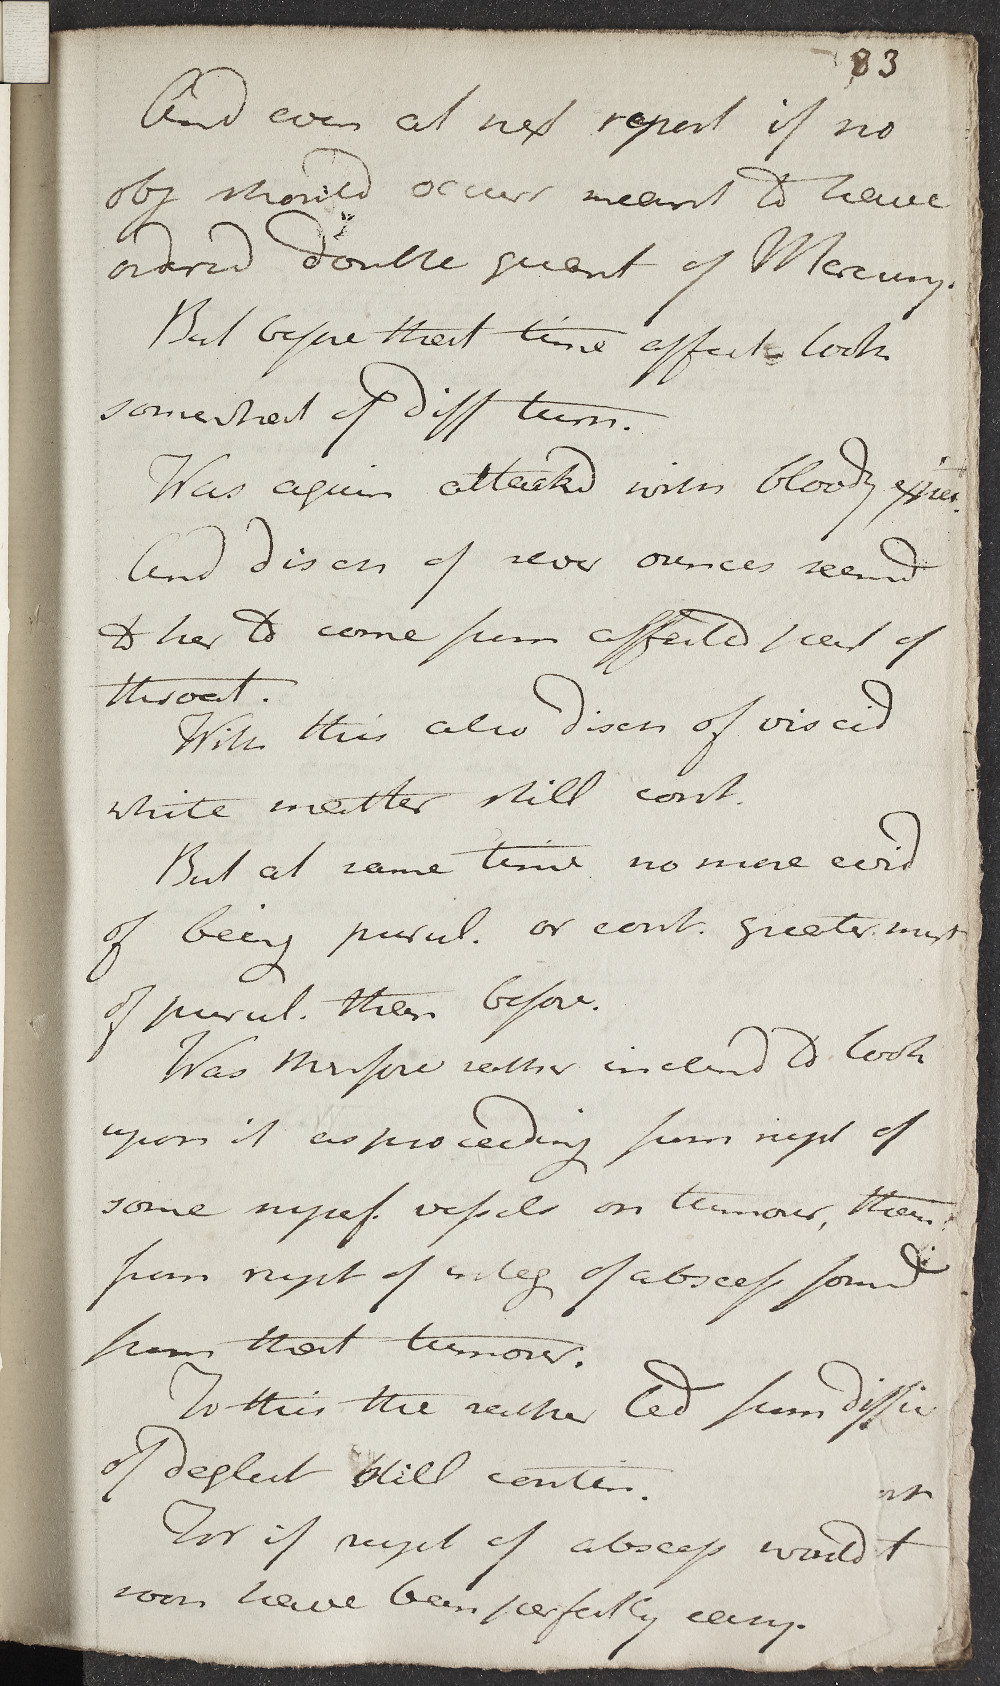 83
And even at next report if no
obj should occurr meant to have
ordered double quant of Mercury.
But before that time affect. took
somewhat of diff turn.
Was again attackd with bloody expect.
And disch of sever ounces seemd
to her to come from affected part of
throat.
With this also disch of viscid
white matter still cont.
But at same time no more evid
of being purul. or cont. greater mixt
of purul. than before.
Was therefore rather inclind to look
upon it as proceeding from rupt of
some superf. vessels on tumour, than
from rupt of integ of abscess formd
from that tumour.
To this the rather led from diffic
of deglut still contin.
For if rupt of abscess would
soon have been perfectly easy.